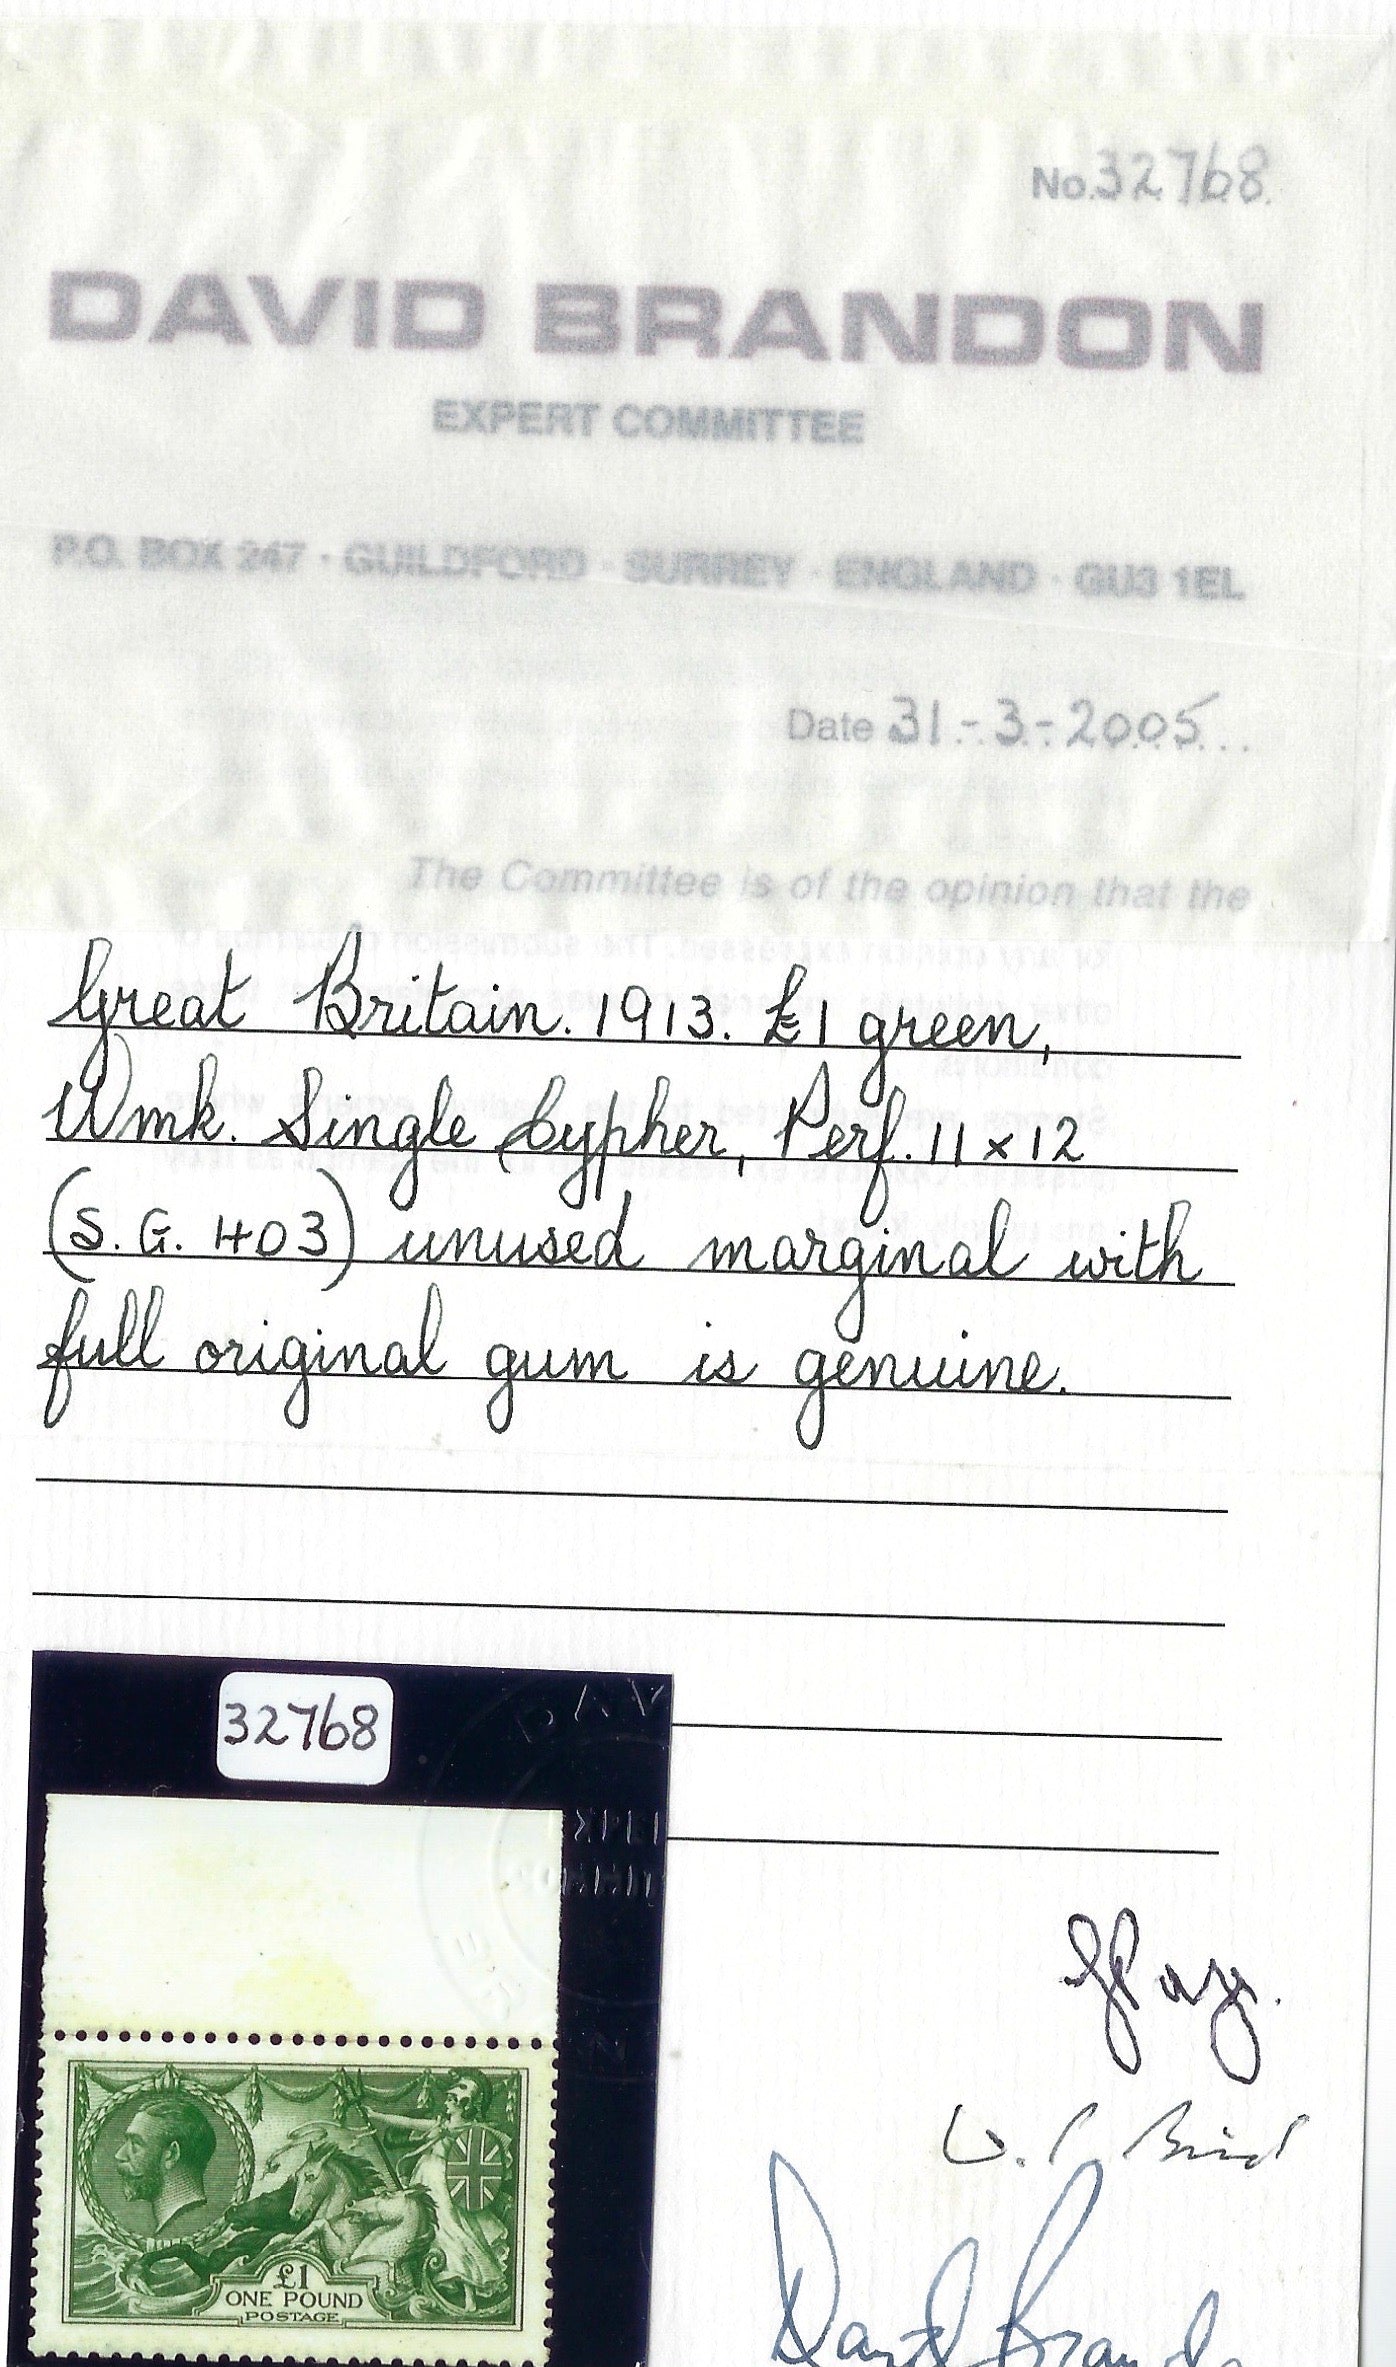 No. 32768
DAVID BRANDON
EXPERT COMMITTEE
P.O. BOX 247 · GUILDFORD · SURREY · ENGLAND · GU3 1EL
Date 31-3-2005
The Committee is of the opinion that the
Great Britain. 1913. £1 green,
Wmk. Single Cypher, Perf. 11 x 12
(S.G. 403) unused marginal with
full original gum is genuine.
32768
£1
ONE POUND
POSTAGE
David